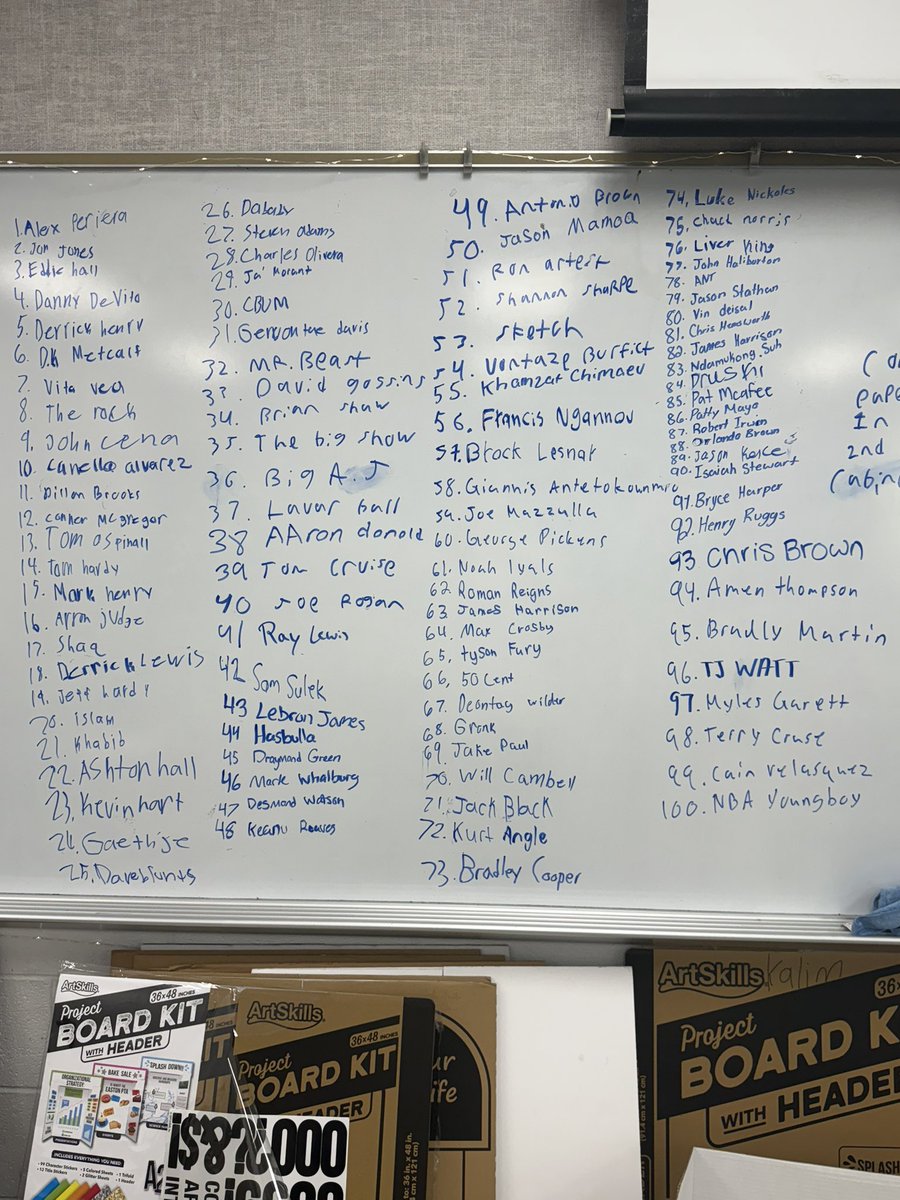 1. Alex Periera
2. Jon Jones
3. Eddie hall
4. Danny DeVito
5. Derrick henry
6. D.K Metcalf
7. Vita vea
8. The rock
9. John cena
10. Canello alvarez
11. Dillon Brooks
12. Conner McGregor
13. Tom Aspinall
14. Tom hardy
15. Mark henry
16. Arron judge
17. Shaq
18. Derrick Lewis
19. Jeff hardy
20. islam
21. Khabib
22. Ashton hall
23. Kevin hart
24. Gaethije
25. Daveblunts
26. DaBaby
27. Steven adams
28. Charles Olivera
29. Ja' Morant
30. CBUM
31. Gervonte davis
32. MR. Beast
33. David goggins
34. Brian shaw
35. The big show
36. Big A.J
37. Lavar ball
38 AAron donald
39 Tom Cruise
40 Joe Rogan
41 Ray Lewis
42 Sam Sulek
43 Lebron James
44 Hasbulla
45 Draymond Green
46 Mark Whalburg
47 Desmond Watson
48 Keanu Reeves
49. Antonio Brown
50. Jason Mamoa
51. Ron artest
52. Shannon sharpe
53. sketch
54. Vontaze Burfict
55. Khamzat Chimaev
56. Francis Ngannou
57. Brock Lesnar
58. Giannis
59. Joe Mazzulla
60. George Pickens
61. Noah lyals
62 Roman Reigns
63. James Harrison
64. Max Crosby
65. tyson Fury
66. 50 Cent
67. Deontay wilder
68. Gronk
69. Jake Paul
70. Will Cambell
71. Jack Black
72. Kurt Angle
73. Bradley Cooper
74. Luke Nickoles
75. chuck norris
76. Liver King
77. John Haliburton
78. ANT
79. Jason Stathan
80. Vin deisal
81. Chris Hemsworth
82. James Harrison
83. Ndamukong Suh
84. DRUSKI
85. Pat McAfee
86. Patty Mayo
87. Robert Irwin
88. Orlando Brown
89. Jason Kelce
90. Isaiah Stewart
91. Bryce Harper
92. Henry Ruggs
93 Chris Brown
94. Amen thompson
95. Bradly Martin
96. TJ WATT
97. Myles Garett
98. Terry Cruse
99. Cain velasquez
100. NBA Youngboy
In
2nd
ArtSkills
36x48 INCHES
Project
BOARD KIT
WITH HEADER
ORGANIZATIONAL STRATEGY
BAKE SALE
SPLASH DOWN!
INCLUDES EVERYTHING YOU NEED
ArtSkills
36x48 INCHES
Project
BOARD KIT
ArtSkills
Kalim
Project
BOARD K
WITH HEADE